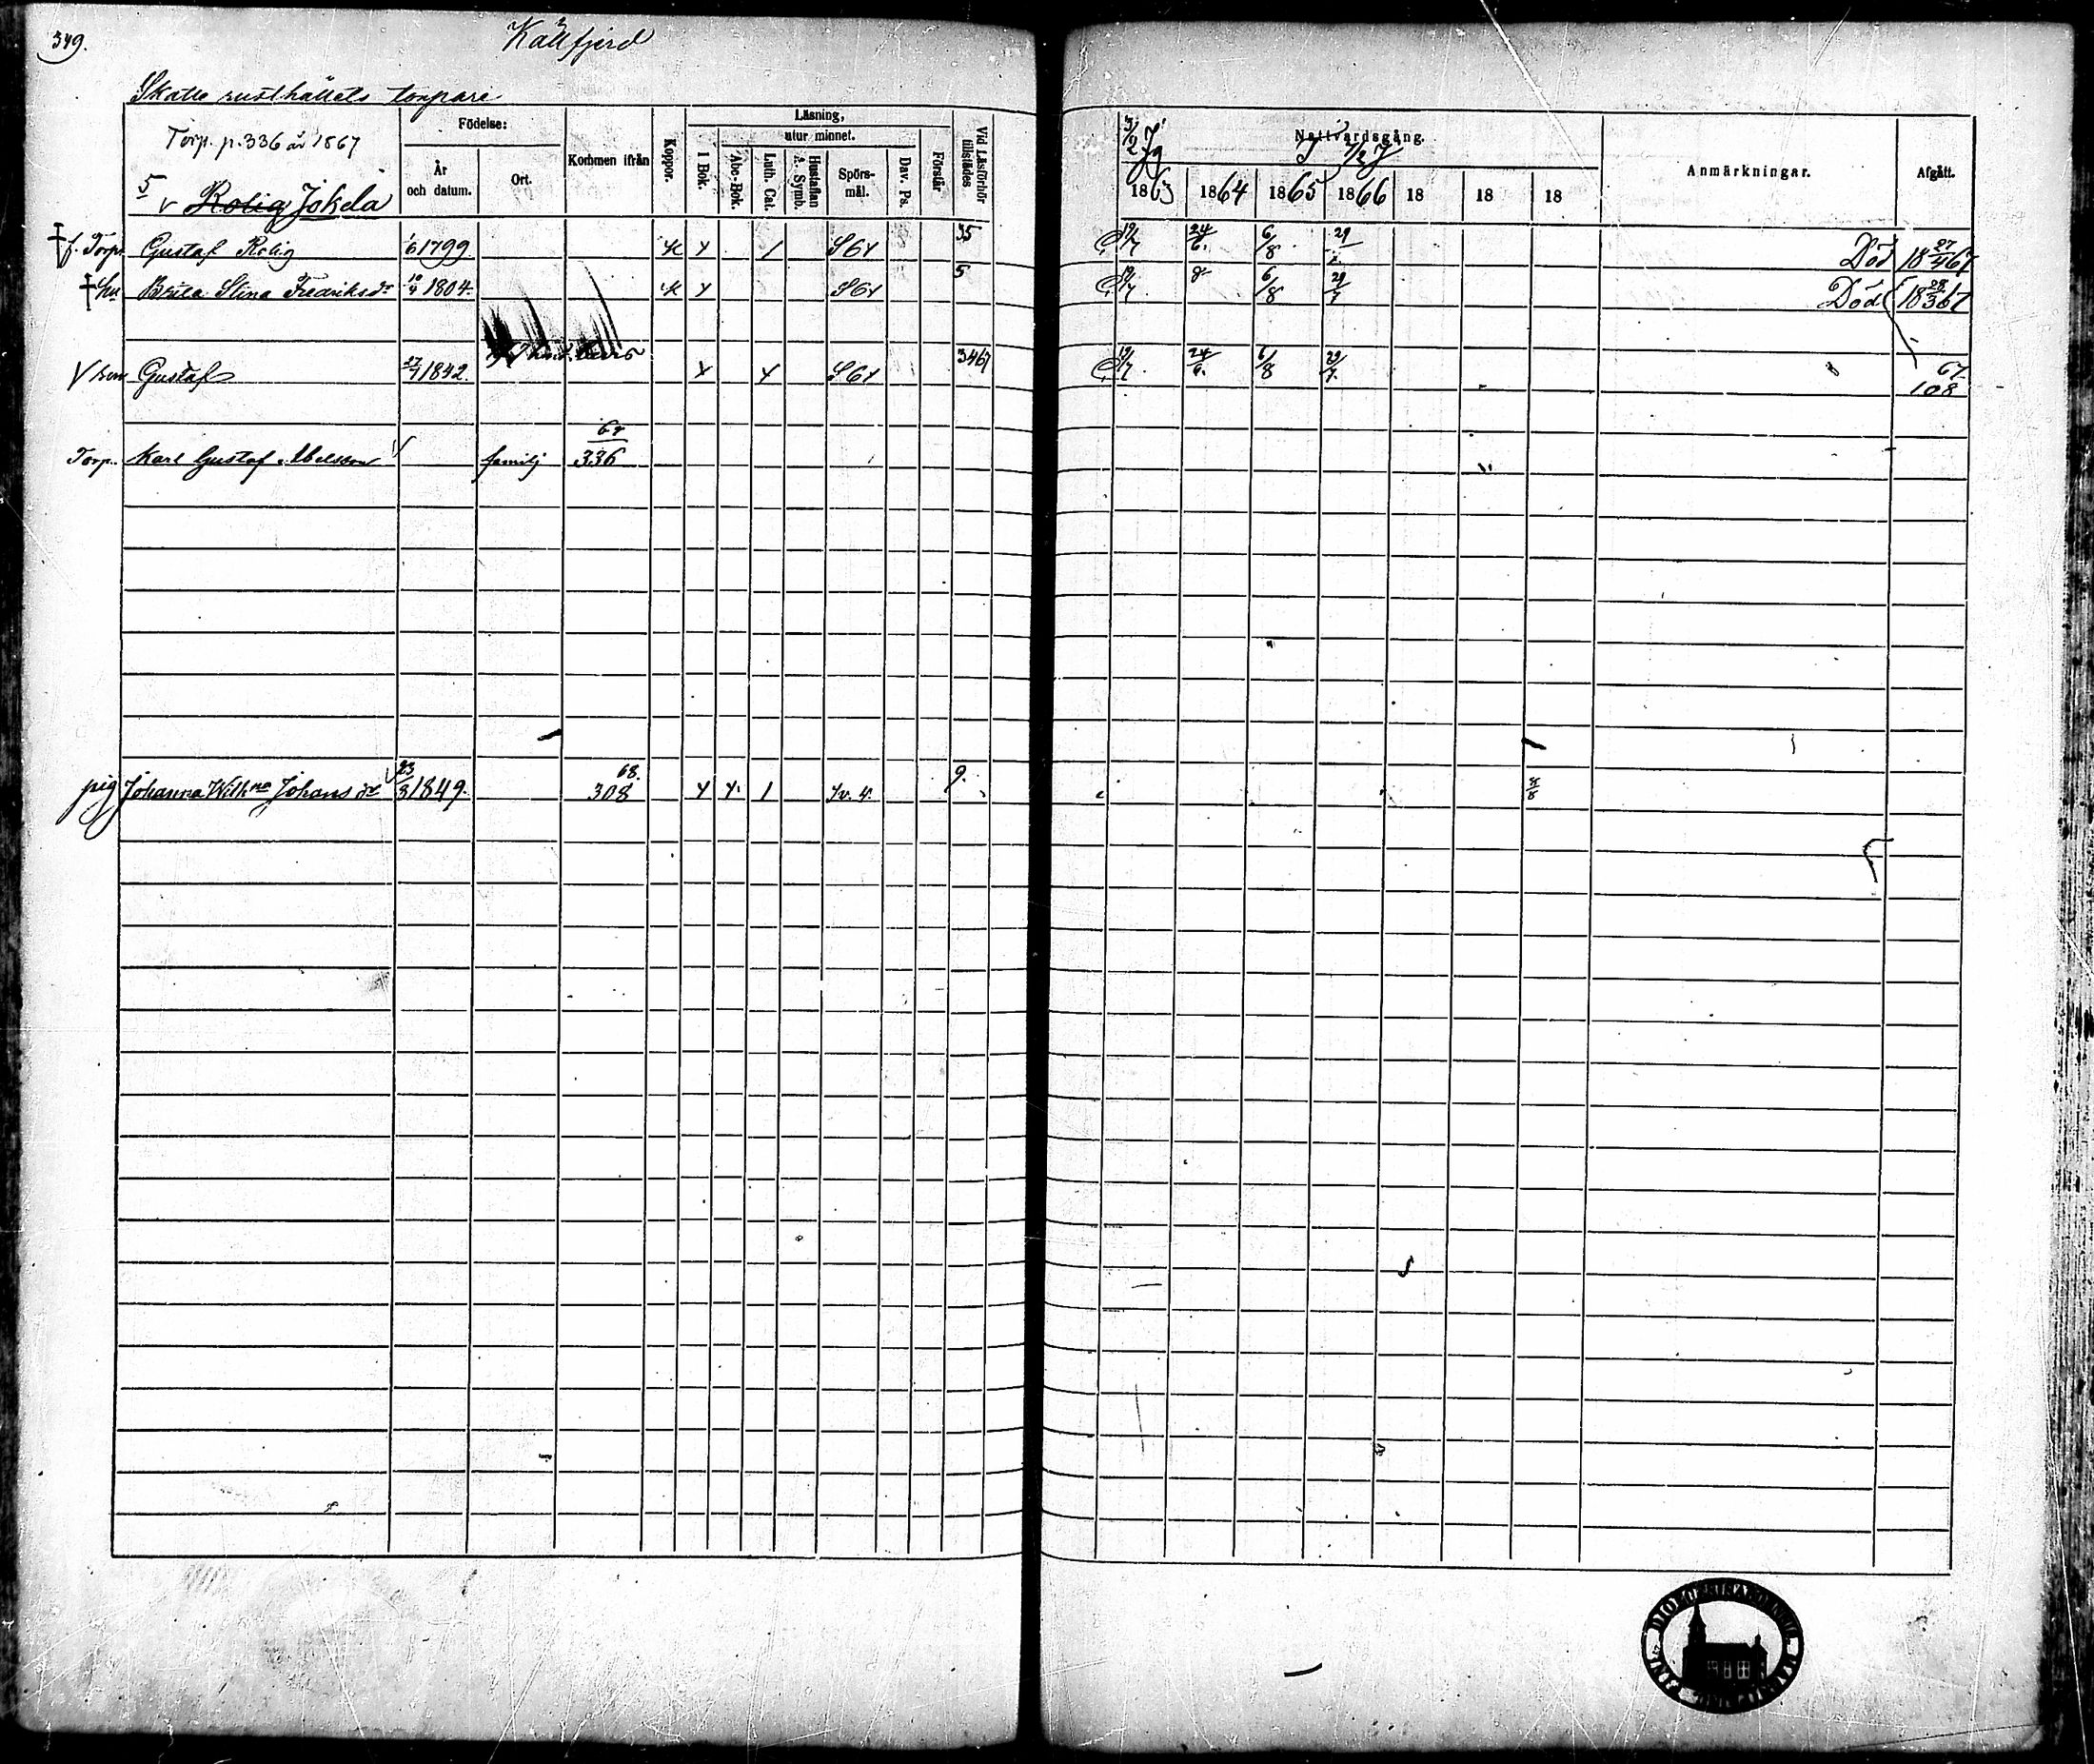 349.
Kallfjerd
Skatte rusthållets torpare
Torp. p. 336 år 1867
5 v Rolig Jokela
Födelse:
År och datum.
Ort.
Kommen ifrån
Koppor.
Läsning,
I Bok.
utur minnet.
Abc-Bok.
Luth. Cat.
Hustaflan A. Symb.
Spörsmål.
Dav. Ps.
Förstår
Vid Läsförhör tillstädes
Nattvardsgång.
1863 1864 1865 1866 18 18 18
Anmärkningar.
Afgått.
† f. Torp. Gustaf Rolig 1/6 1799 x 1 35 19/7 24/6 6/8 29/7 Död 27/4 1867
† hu Brita Stina Fredriksdr 1804 x 5 19/7 6/8 29/7 Död 28/3 1867
V son Gustaf 27/7 1842. x x 3467 19/7 24/6 6/8 29/7 67/108
Torp. Karl Gustaf Abelsson familj 67/336
pig Johanna Wilhna Johansdr 23/3 1849. 68. 308 x x 1 9.